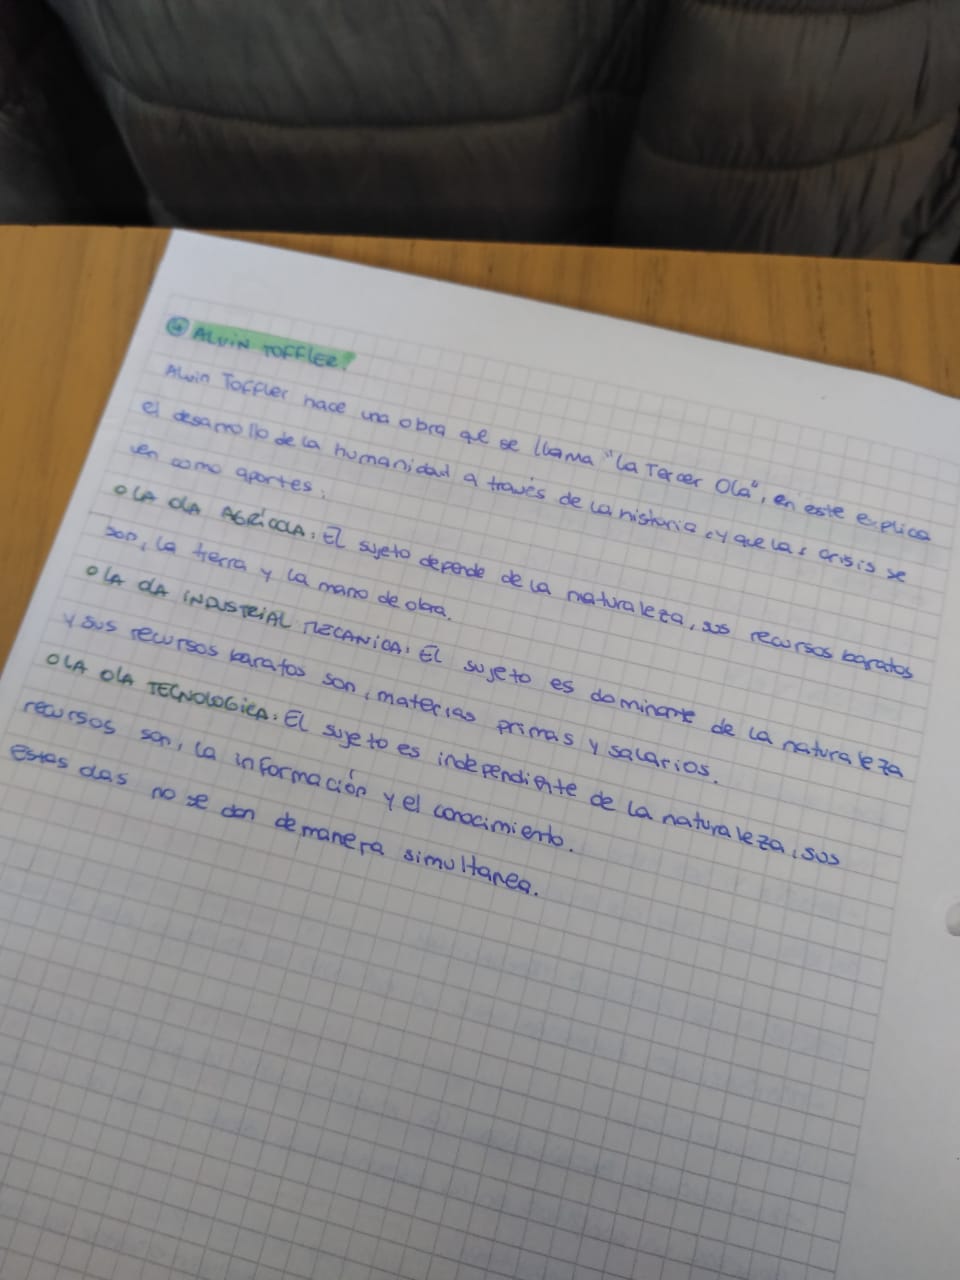 ④ ALVIN TOFFLER:
Alvin Toffler hace una obra que se llama "la Tercer Ola", en este explica
el desarrollo de la humanidad a través de la historia, y que las crisis se
ven como aportes:
○ LA OLA AGRÍCOLA: El sujeto depende de la naturaleza, sus recursos baratos
son, la tierra y la mano de obra.
○ LA OLA INDUSTRIAL MECANICA: El sujeto es dominante de la naturaleza
y sus recursos baratos son, materias primas y salarios.
○ LA OLA TECNOLOGICA: El sujeto es independiente de la naturaleza, sus
recursos son, la información y el conocimiento.
estas olas no se dan de manera simultanea.